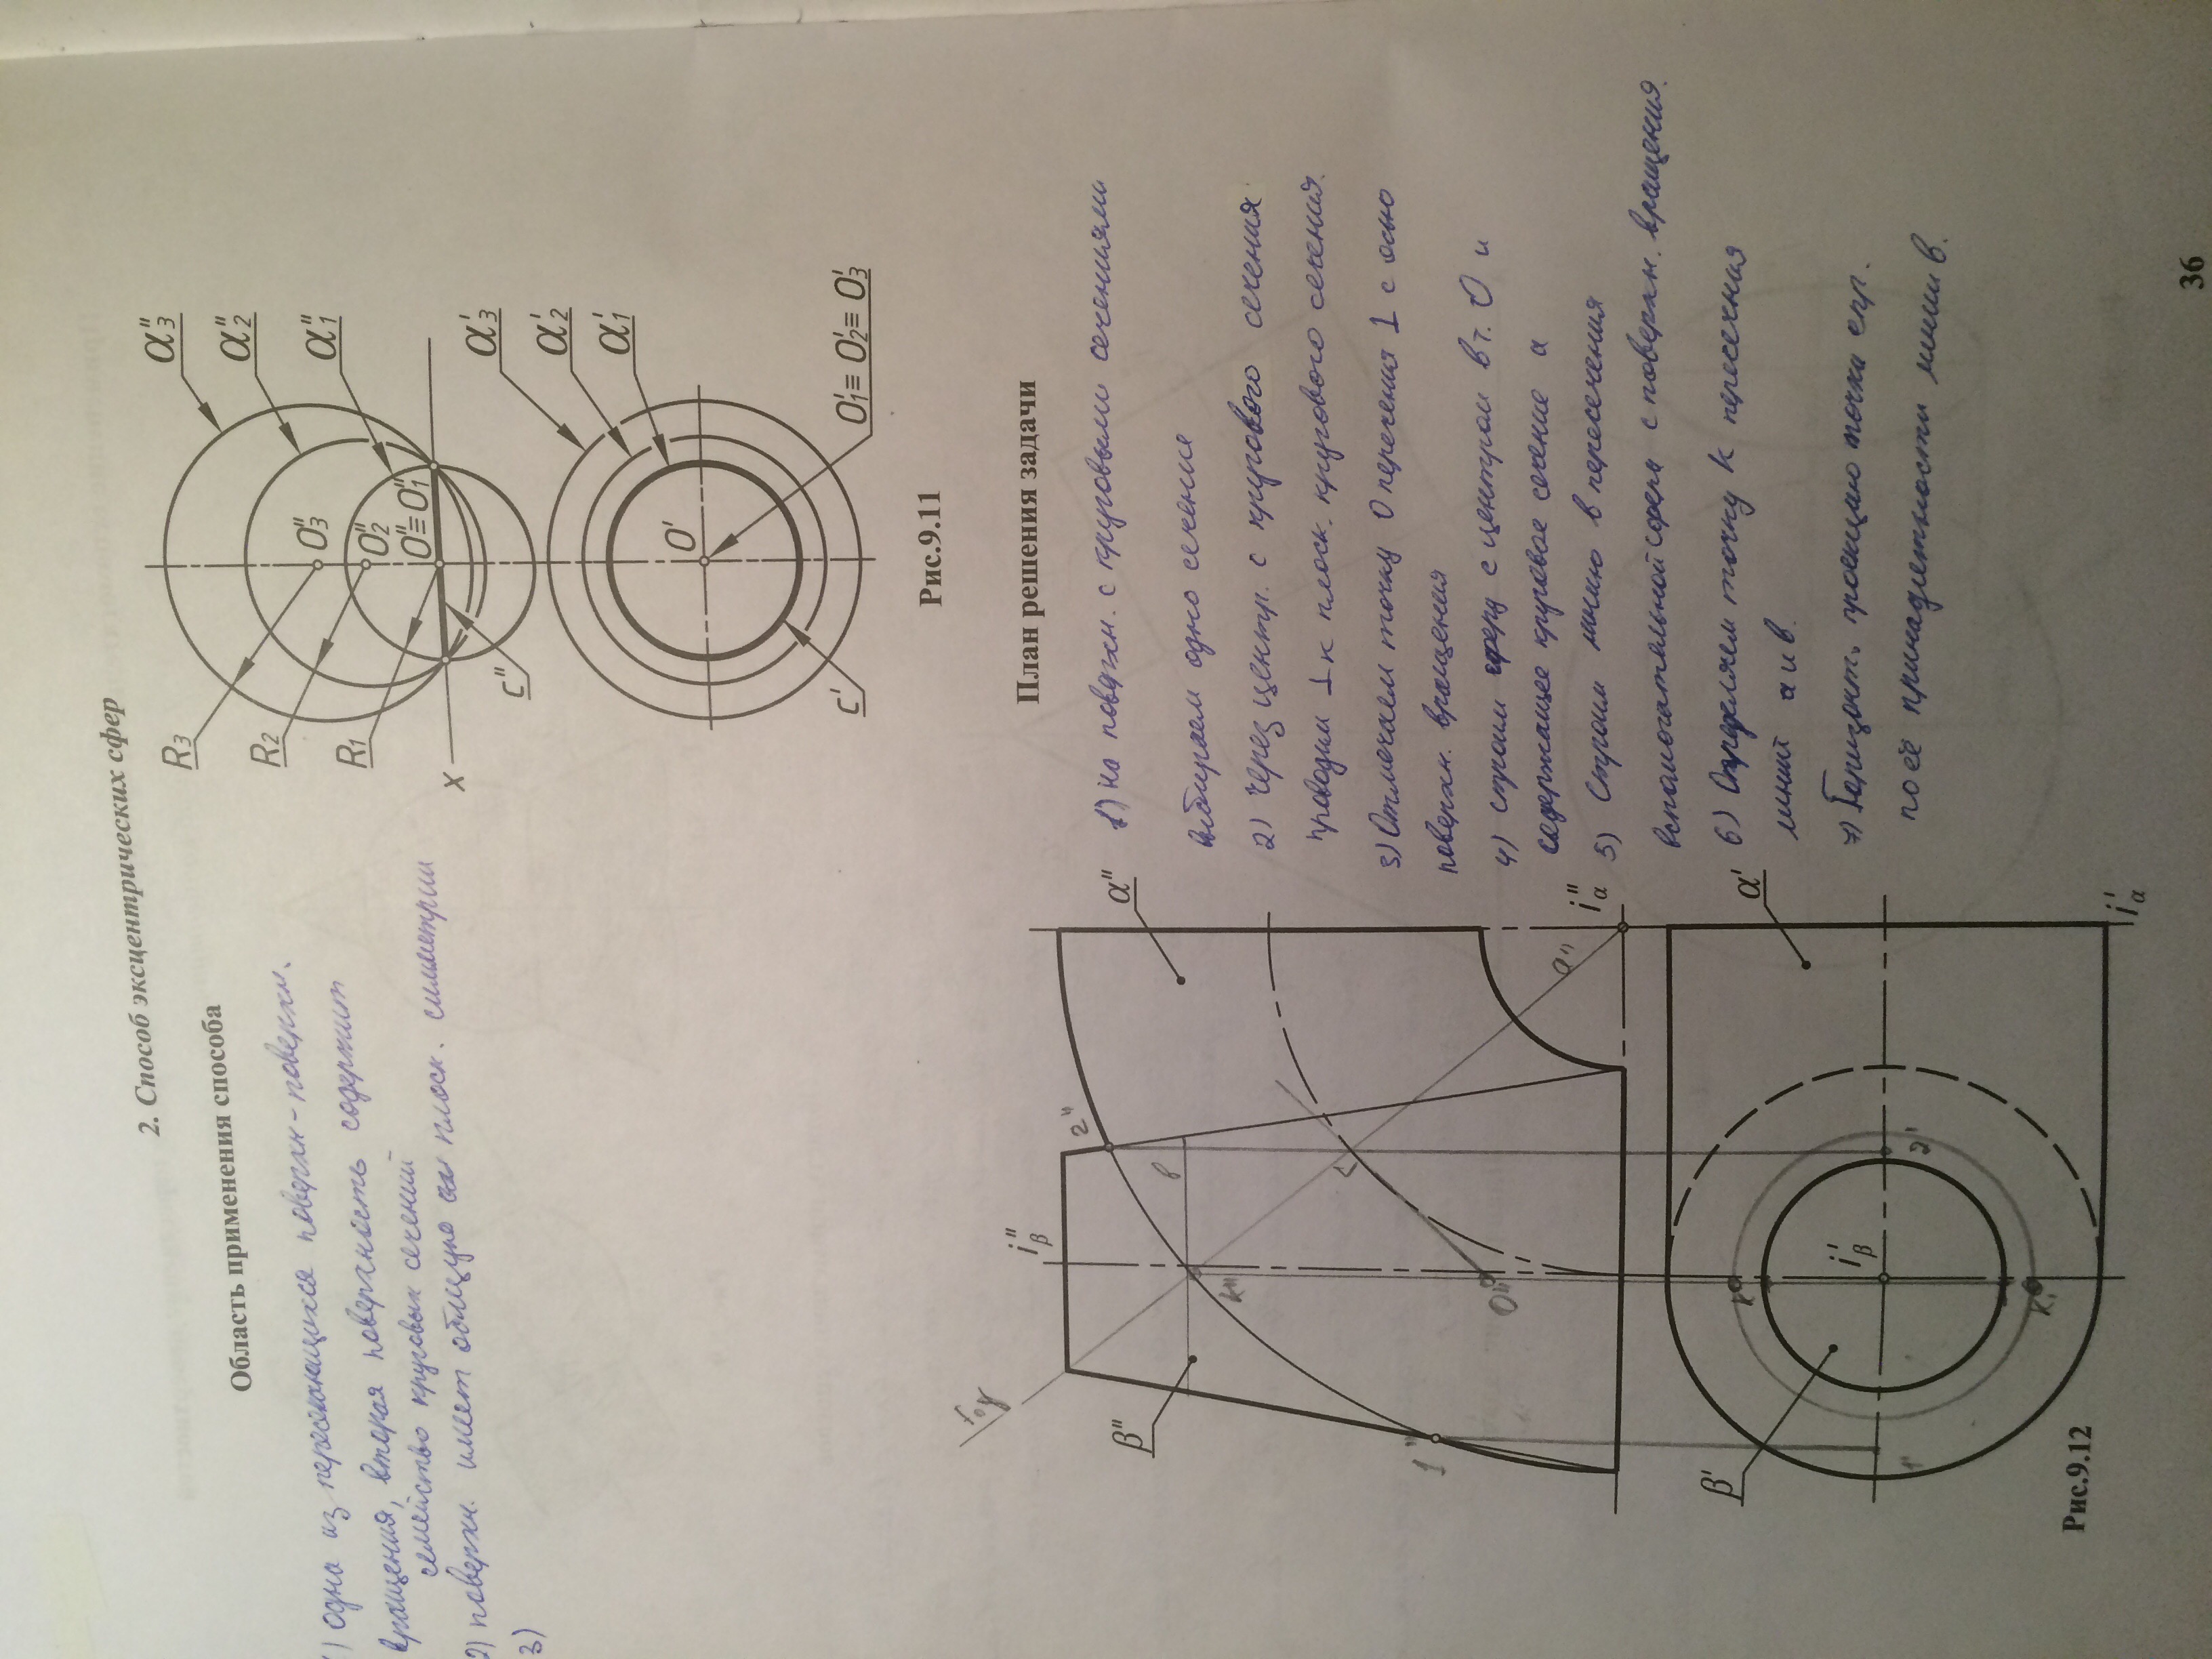 2. Способ эксцентрических сфер
Область применения способа
1) одна из пересекающихся поверхн - поверхн.
вращения, вторая поверхность содержит
семейство круговых сечений
2) поверхн. имеет общую плоск. симметрии
3)
α"3
R3
α"2
R2
α"1
O"3
R1
O"2
O"≡O"1
x
c"
α'3
α'2
α'1
O'
c'
O'1≡ O'2≡ O'3
Рис.9.11
План решения задачи
1) на поверхн. с круговыми сечениями
выбираем одно сечение
2) Через центр. с кругового сечения
проводим ⊥ к плоск. кругового сечения.
3) Отмечаем точку O перечения ⊥ с осью
поверхн. вращения
4) Строим сферу с центром в т. O и
содержащее круговое сечение a
5) Строим линию в пересечения
вспомогательной сферы с поверхн. вращения.
6) Определяем точку K пересечная
линий a и в.
7) Горизонт. проекцию точки опр.
по её принадлежности линии в.
i"β
2"
β"
α"
в
K"
1"
O"
a"
i"α
β'
K'
α'
i'β
1'
2'
K'
Рис.9.12
i'α
36